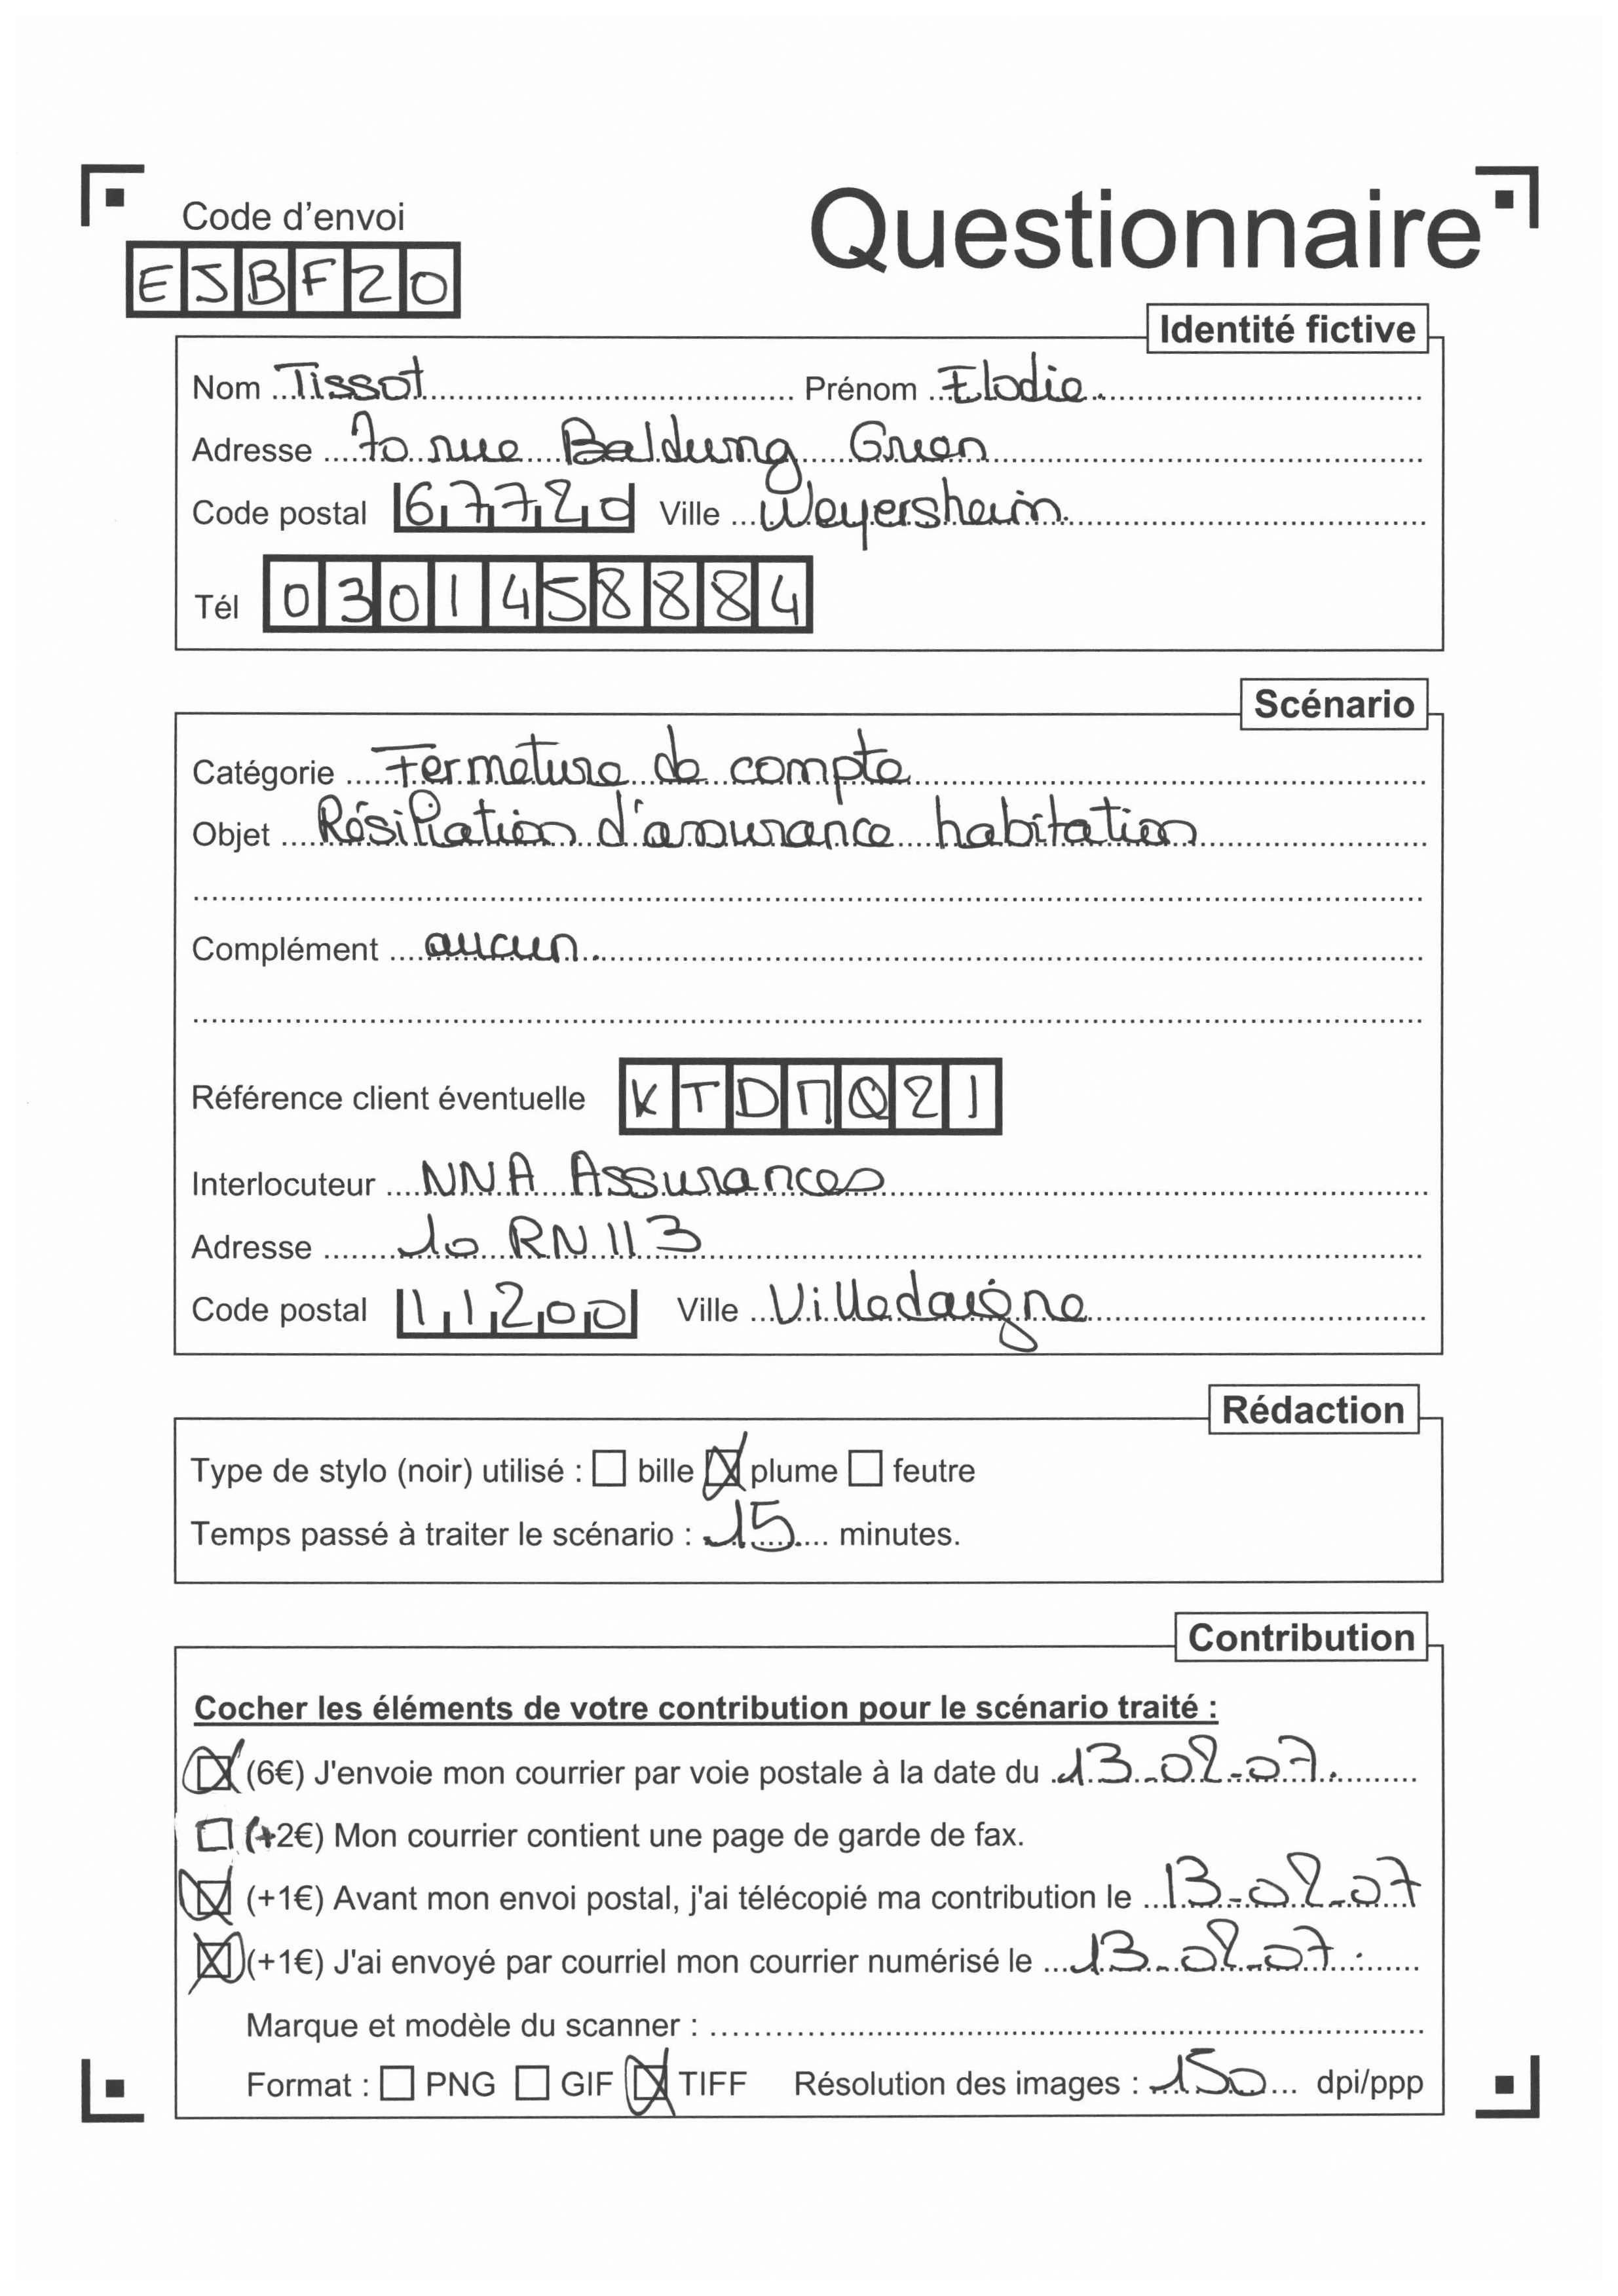 Code d'envoi
Questionnaire
ESBF20
Identité fictive
Nom Tissot Prénom Elodie.
Adresse 70 rue Baldung Grien
Code postal 67720 Ville Weyersheim.
Tél 0301458884
Scénario
Catégorie Fermeture de compte
Objet Résiliation d'assurance habitation
Complément aucun.
Référence client éventuelle KTDMQ21
Interlocuteur NNA Assurances
Adresse 10 RN 113
Code postal 11200 Ville Villedaigne
Rédaction
Type de stylo (noir) utilisé : ☐ bille ☒ plume ☐ feutre
Temps passé à traiter le scénario : 15 minutes.
Contribution
Cocher les éléments de votre contribution pour le scénario traité :
☒ (6€) J'envoie mon courrier par voie postale à la date du 13-02-07.
☐ (+2€) Mon courrier contient une page de garde de fax.
☒ (+1€) Avant mon envoi postal, j'ai télécopié ma contribution le 13-02-07
☒ (+1€) J'ai envoyé par courriel mon courrier numérisé le 13-02-07.
Marque et modèle du scanner :
Format : ☐ PNG ☐ GIF ☒ TIFF Résolution des images : 150 dpi/ppp